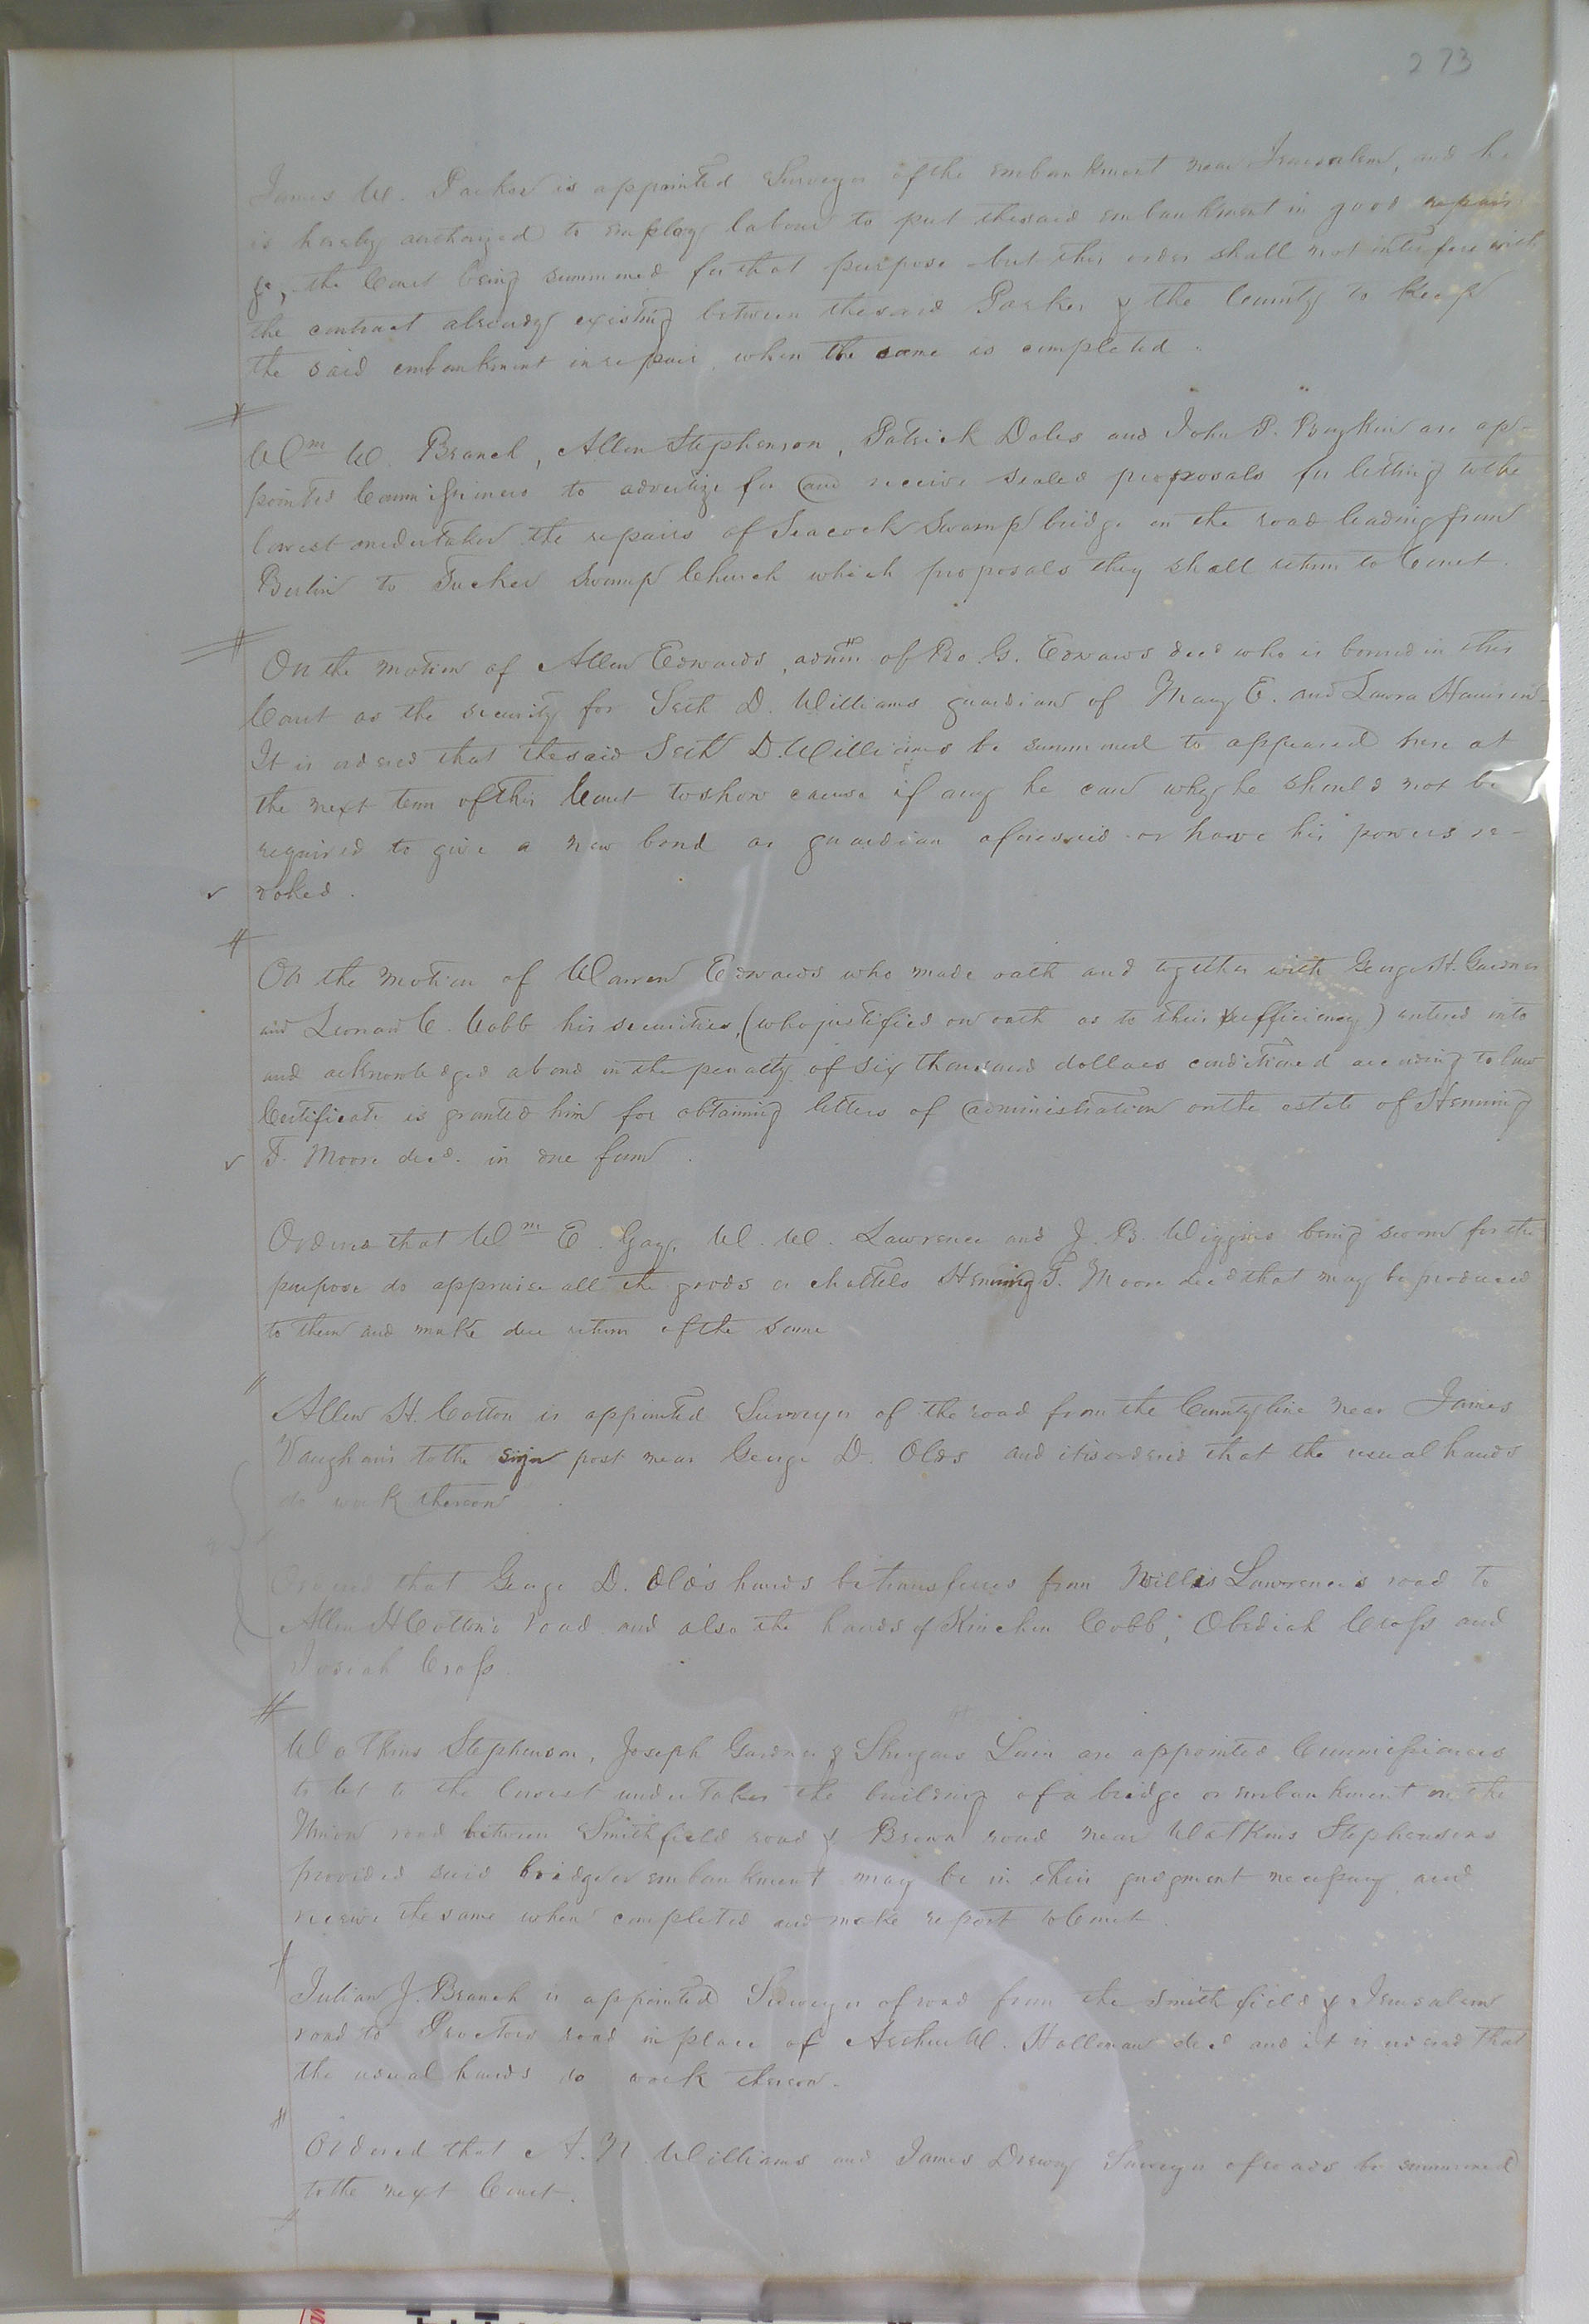 273
James W. Parker is appointed Surveyor of the embankment near Jerusalem, and he
is hereby authorized to employ labour to put the said embankment in good repair
&c, the Court being summoned for that purpose but this order shall not interfere with
the contract already existing between the said Parker & the County to keep
the said embankment in repair, when the same is completed.
Wm W. Branch, Allen Stephenson, Patrick Doles and John P. Boykin are ap-
pointed Commissioners to advertize for and receive sealed proposals for letting to the
lowest undertaker the repairs of Seacock Swamp bridge on the road leading from
Berlin to Tucker Swamp Church which proposals they shall return to Court.
On the motion of Allen Edwards, admr of Ro. G. Edwards decd who is bound in this
Court as the security for Seth D. Williams guardian of Mary E. and Laura Harrison
It is ordered that the said Seth D. Williams be summoned to appeared here at
the next term of this Court to show cause if any he can why he should not be
required to give a new bond as guardian aforesaid or have his powers re-
voked.
On the motion of Warren Edwards who made oath and together with George H. Gardner
and Leonard C. Cobb his securities, (who justified on oath as to their sufficiency) entered into
and acknowledged a bond in the penalty of six thousand dollars conditioned according to law
Certificate is granted him for obtaining letters of administration on the estate of Henning
T. Moore decd. in due form.
Ordered that Wm E. Gay, W. W. Lawrence and J. B. Wiggins being sworn for the
purpose do appraise all the goods or chattels Henning T. Moore decd that may be produced
to them and make due return of the same
Allen H. Cotton is appointed Surveyor of the road from the County line near James
Vaughan's to the sign post near George D. Olds and it is ordered that the usual hands
do work thereon.
Ordered that George D. Old's hands be transferred from Willis Lawrence's road to
Allen H Cotton's road and also the hands of Kinchen Cobb, Obediah Cross and
Josiah Cross.
Watkins Stephenson, Joseph Gardner & Lain are appointed Commissioners
to let to the lowest undertaker the building of a bridge or embankment on the
Union road between Smithfield road & Brown road near Watkins Stephensons
provided said bridge or embankment may be in their judgment necessary and
receive the same when completed and make report to Court.
Julian J. Branch is appointed Surveyor of road from the Smithfield & Jerusalem
road to Proctors road in place of Archer W. Holloman decd and it is ordered that
the usual hands do work thereon.
Ordered that A. N. Williams and James Drewry Surveyor of roads be summoned
to the next Court.